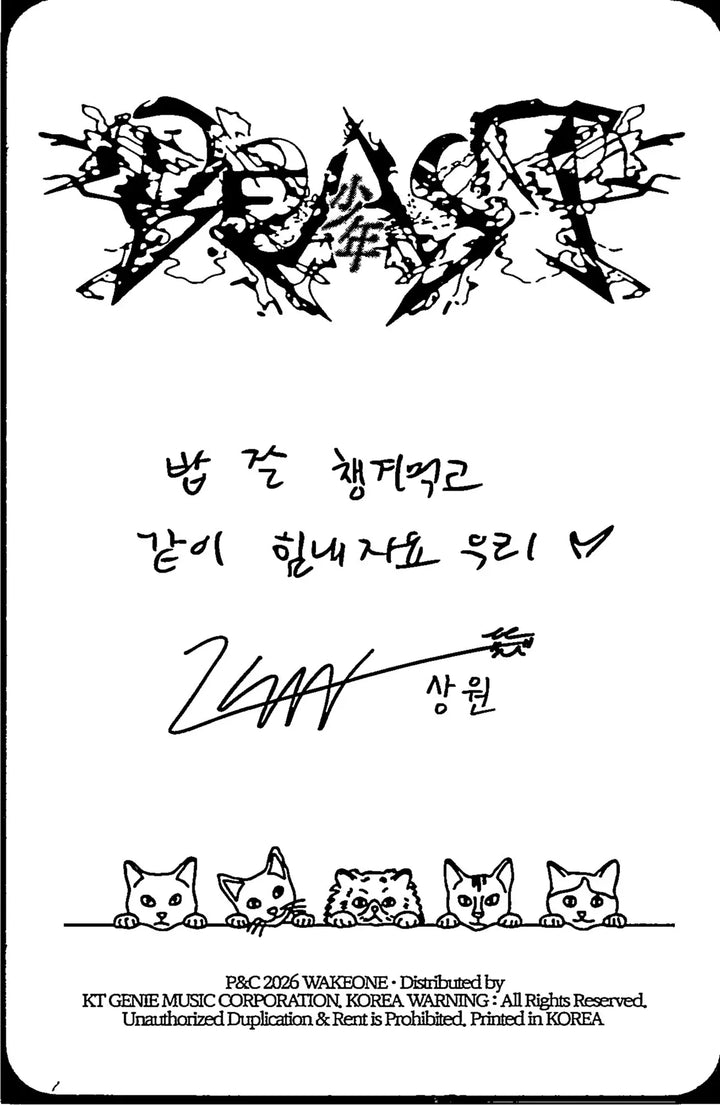 BEAST
少年
밥 잘 챙겨먹고
같이 힘내자요 우리
상원
P&C 2026 WAKEONE · Distributed by
KT GENIE MUSIC CORPORATION, KOREA WARNING : All Rights Reserved.
Unauthorized Duplication & Rent is Prohibited. Printed in KOREA